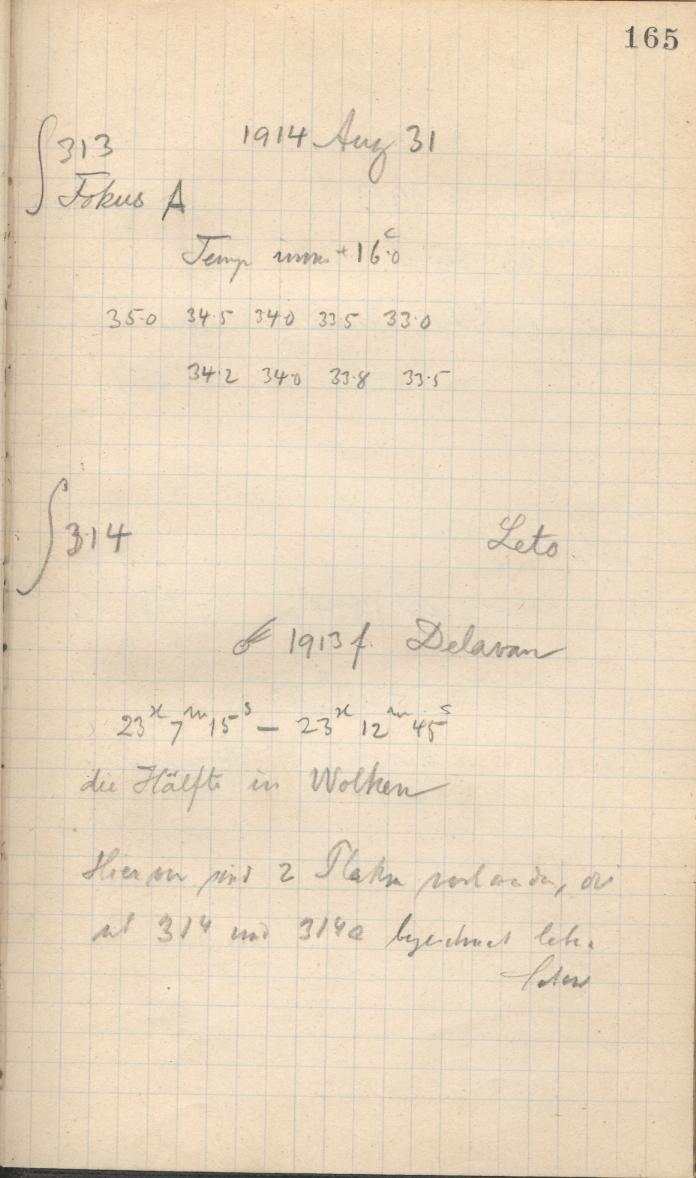 165
313 1914 Aug 31
Fokus A
Temp innen +16°.0
35.0 34.5 34.0 33.5 33.0
34.2 34.0 33.8 33.5
314 Leto
1913 f. Delavan
23h 7m 15s — 23h 12m 45s
die Hälfte in Wolken
Hiervon sind 2 Platten vorhanden, die
ich 314 und 314a bezeichnet habe.